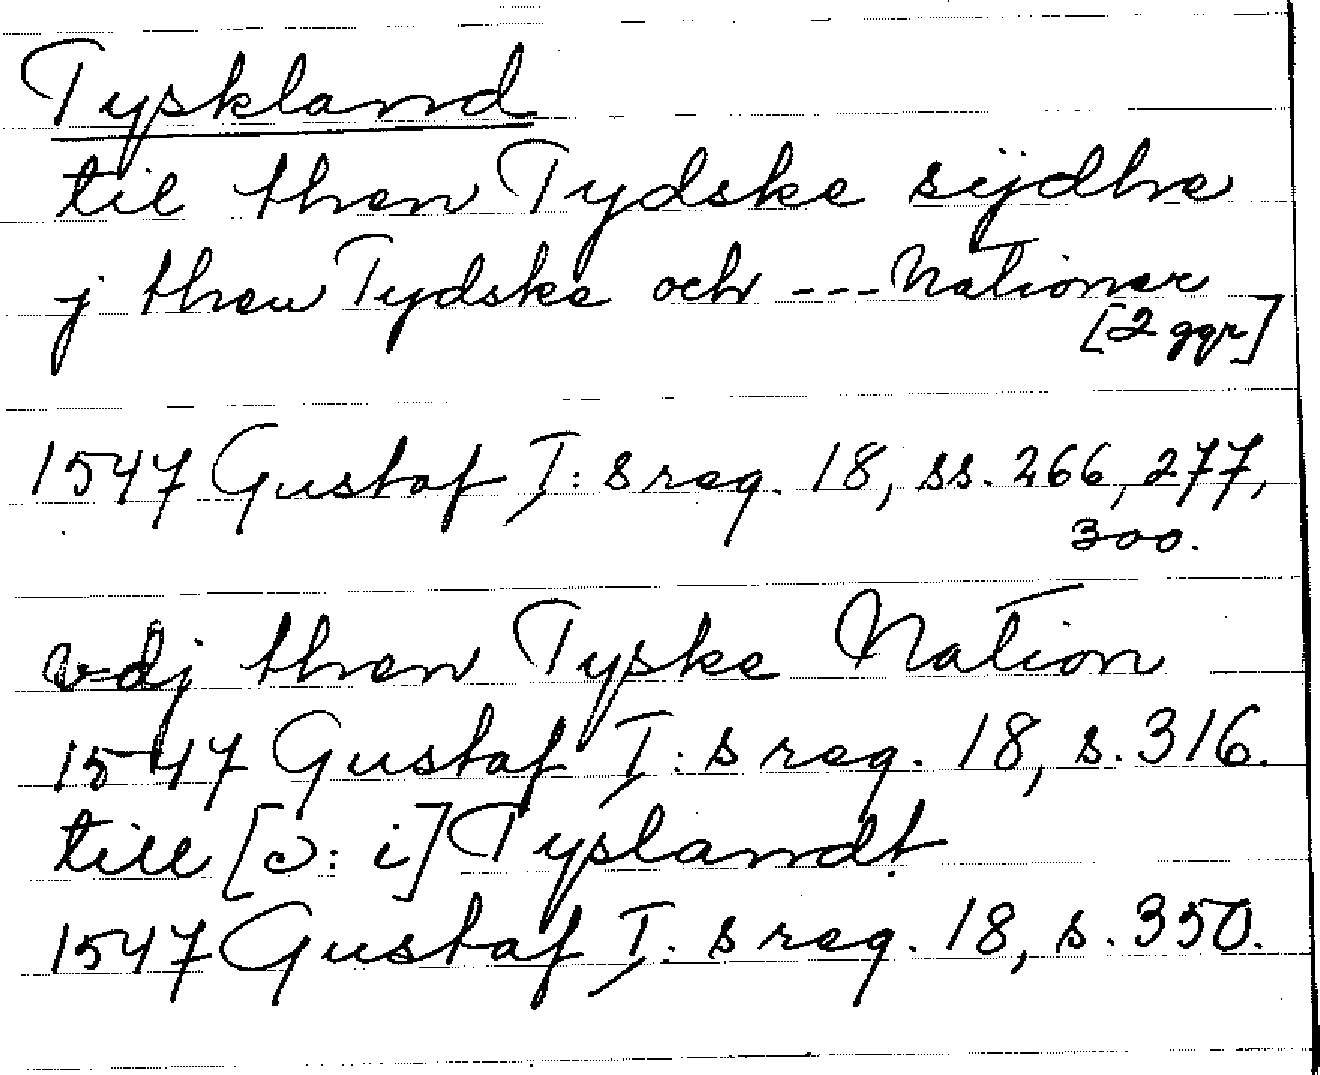 Tyskland
til then Tydske sijdhe
j then Tydske och --- Nationer
[2 ggr]
1547 Gustaf I: s reg. 18, ss. 266, 277,
300.
vdj then Tyske Nation
1547 Gustaf I: s reg. 18, s. 316.
till [ɔ: i] Tyslandt
1547 Gustaf I: s reg. 18, s. 350.